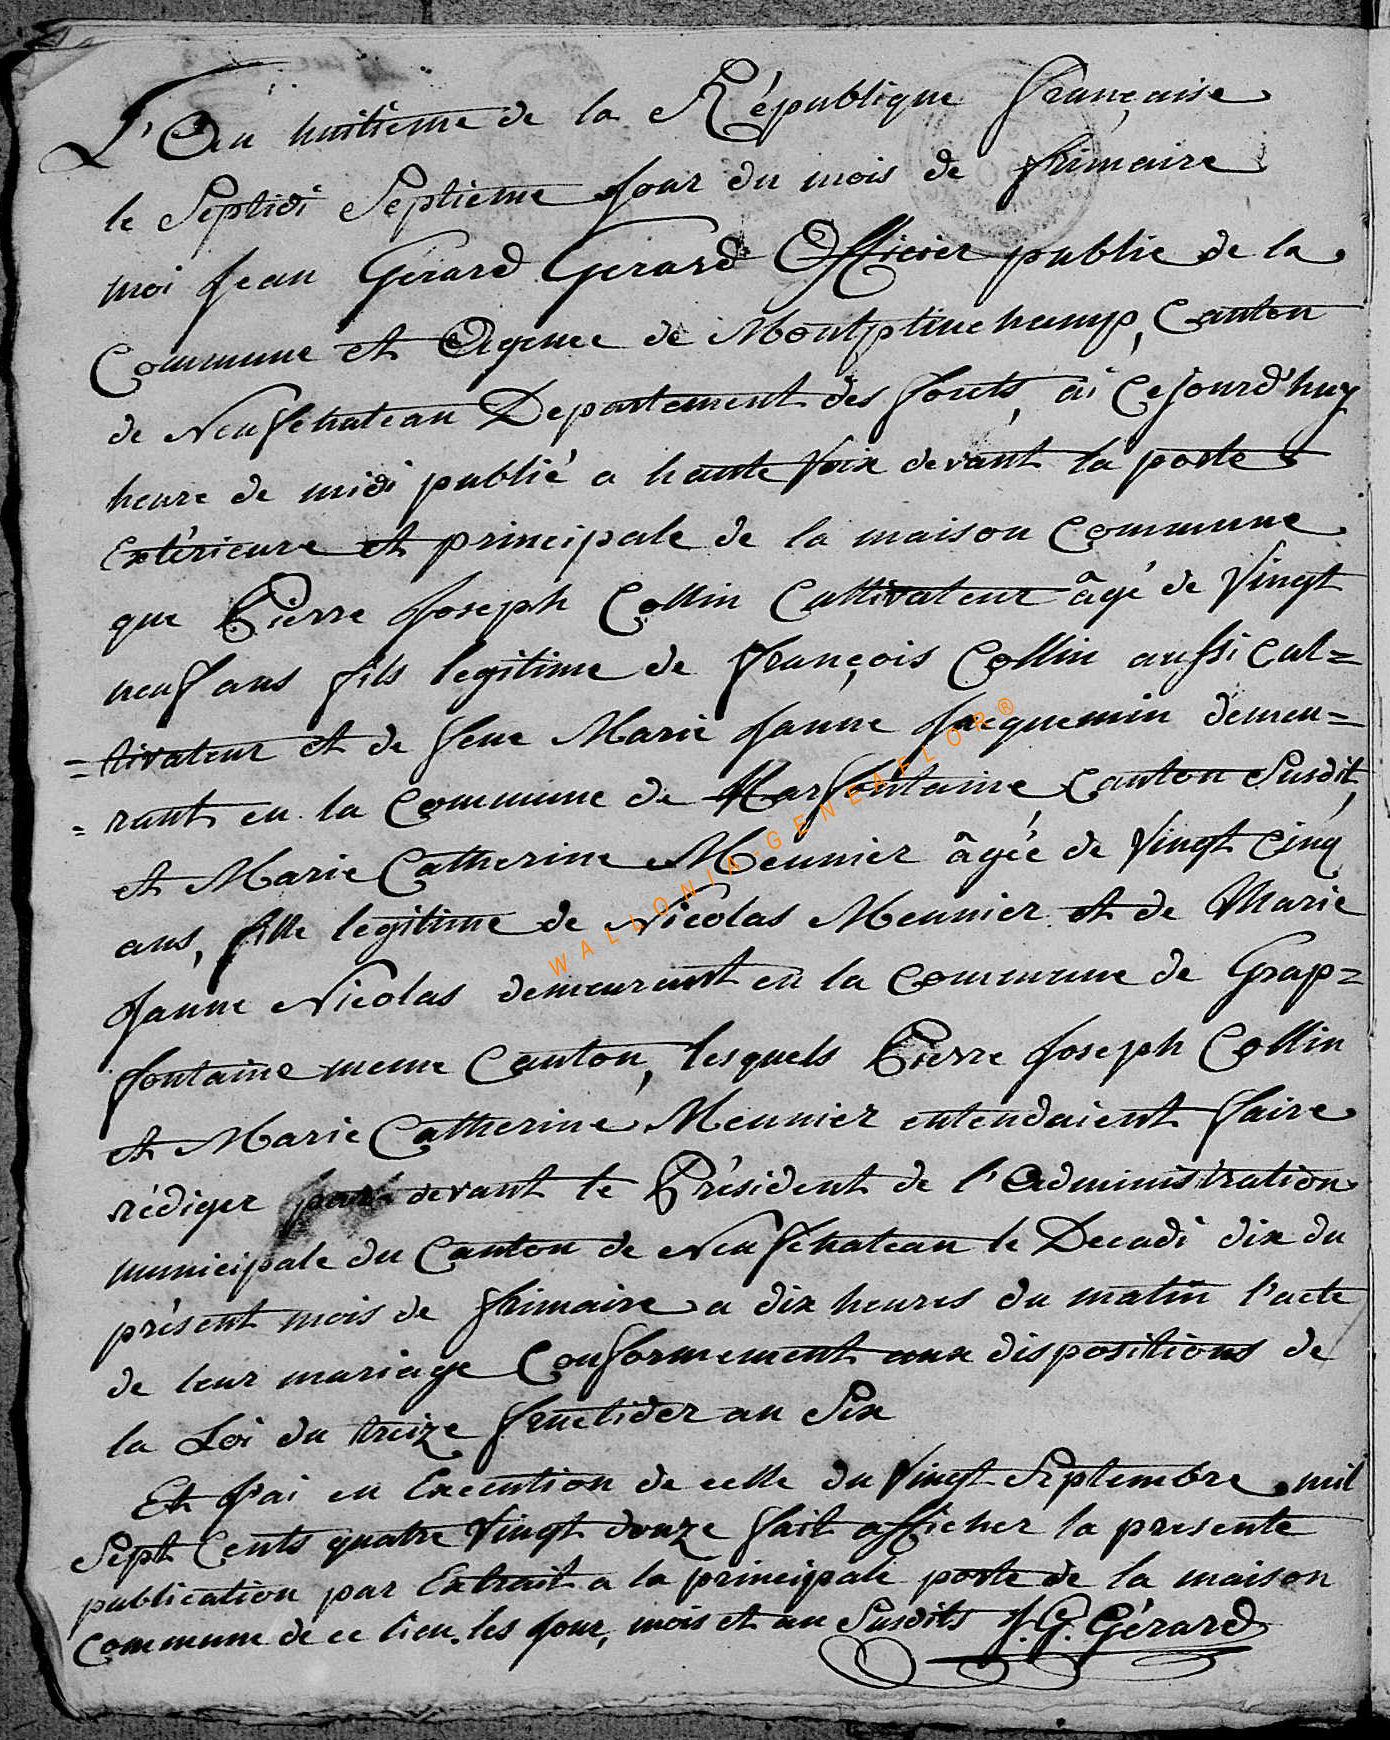 L'An huitieme de la République française
le Septidi Septieme Jour du mois de frimaire
moi Jean Gerard Gerard Officier public de la
Commune et Agence de Montplinchamp, Canton
de Neufchateau Departement des forets, ai Cejourd'huy
heure de midi publié a haute Voix devant la porte
Extérieure et principale de la maison Commune
que Pierre Joseph Collin Cultivateur âgé de Vingt
neuf ans fils legitime de François Collin aussi Cul=
=tivateur et de feue Marie Janne Jacquemin demeu=
=rant en la Commune de Warfontaine Canton Susdit,
et Marie Catherine Meunier âgée de Vingt Cinq
ans, fille legitime de Nicolas Meunier et de Marie
Janne Nicolas demeurant en la Commune de Grap=
fontaine meme Canton, lesquels Pierre Joseph Collin
et Marie Catherine Meunier entendaient faire
rédiger par devant le Président de l'Administration
municipale du Canton de Neufchateau le Decadi dix du
présent mois de frimaire a dix heures du matin l'acte
de leur mariage Conformement aux dispositions de
la Loi du treize fructidor an Six
Et J'ai en Execution de celle du Vingt Septembre mil
Sept Cents quatre Vingt douze fait afficher la presente
publication par Extrait a la principale porte de la maison
Commune de ce lieu. les Jour, mois et an Susdits J. G. Gérard
WALLONIA-GENEAFLOR®